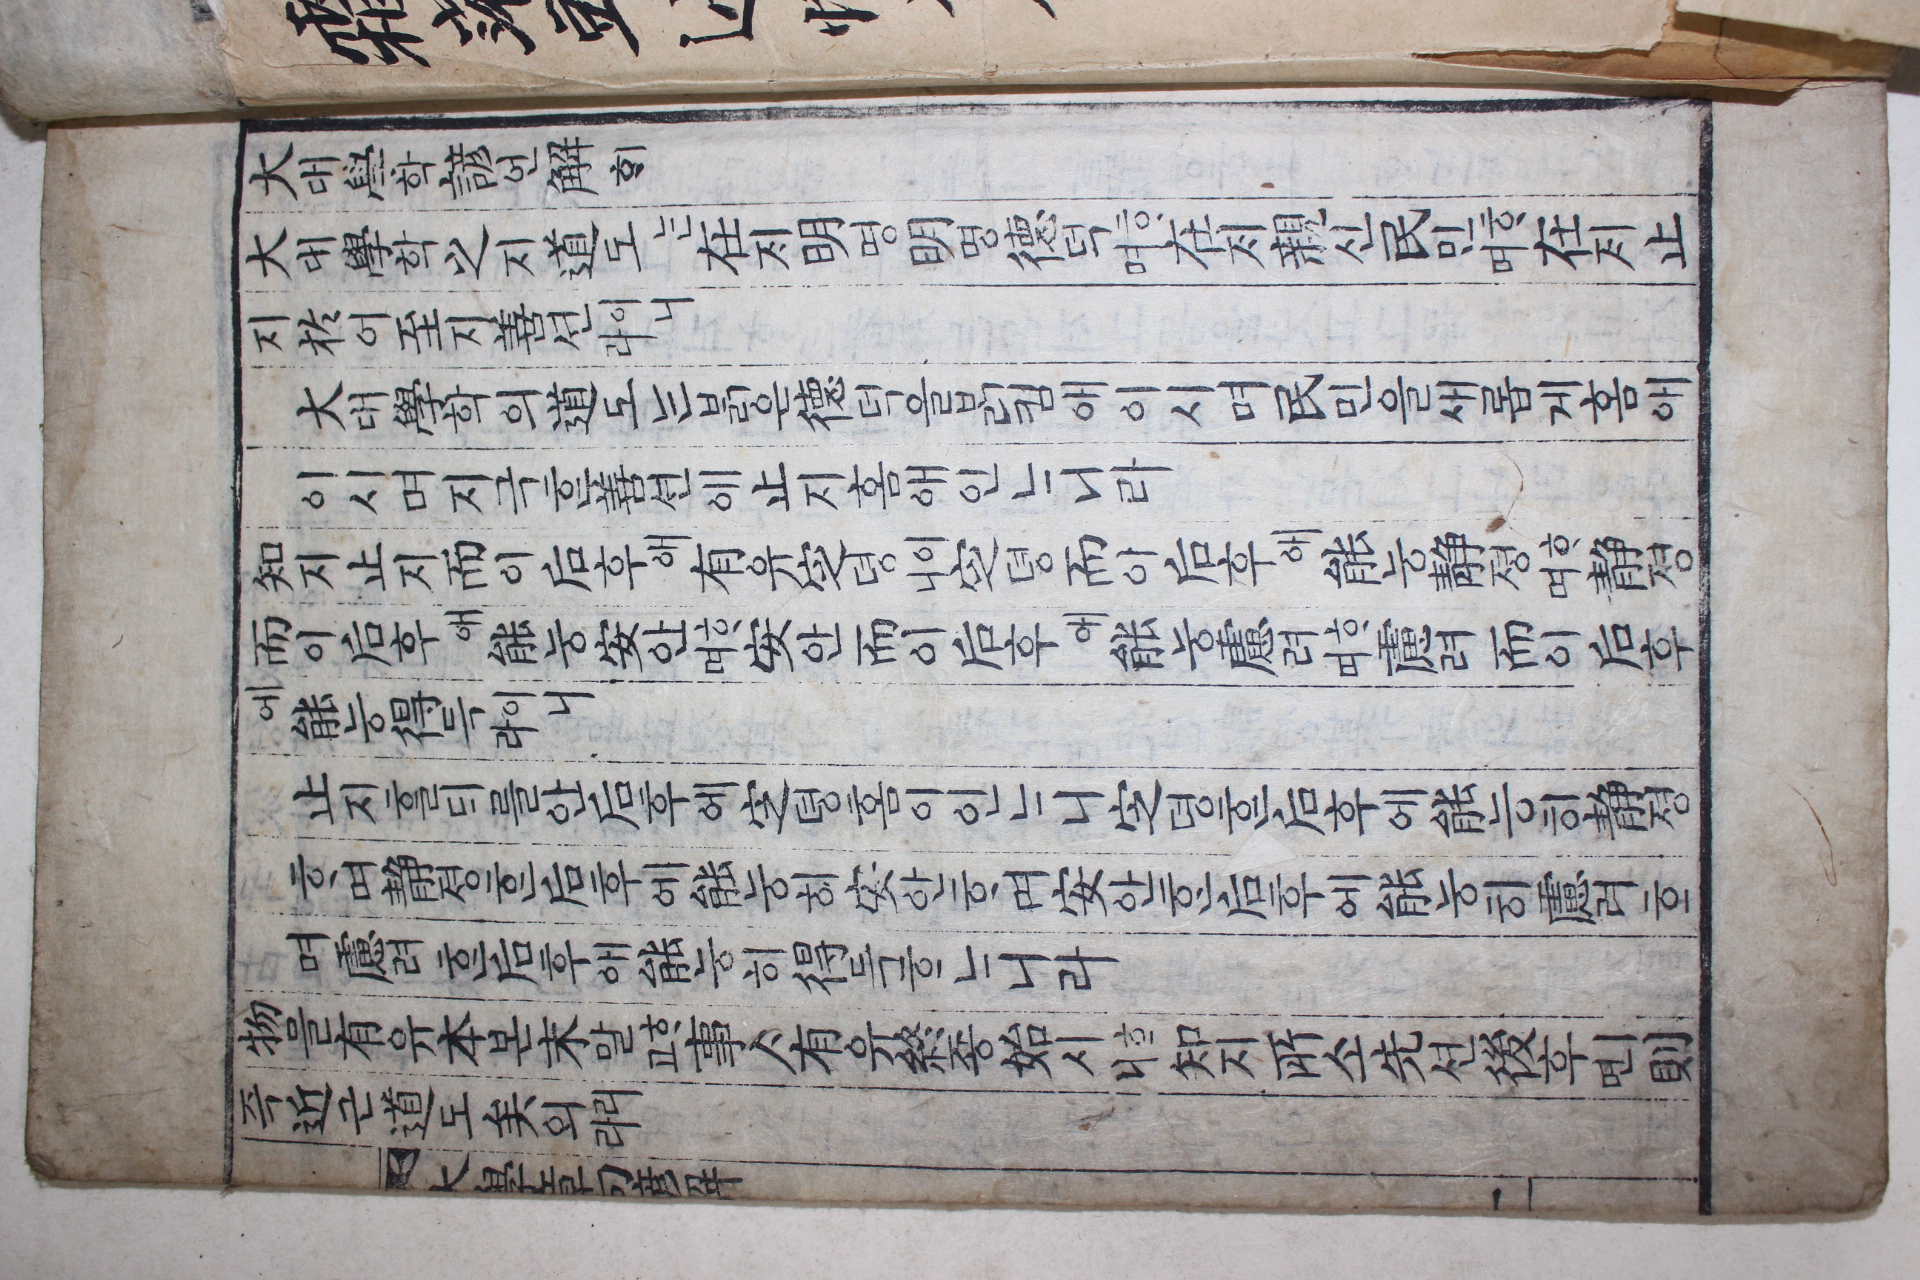 大대學학諺언解ᄒᆡ
大대學학之지道도ᄂᆞᆫ在ᄌᆡ明명明명德덕ᄒᆞ며在ᄌᆡ親신民민ᄒᆞ며在ᄌᆡ止
지於어至지善션이니라
大대學학의道도ᄂᆞᆫᄇᆞᆰ은德덕을ᄇᆞᆰ킴애이시며民민을새롭게홈애
이시며지극ᄒᆞᆫ善션애止지홈애인ᄂᆞ니라
知지止지而이后후애有유定뎡이니定뎡而이后후애能능静졍ᄒᆞ며静졍
而이后후애能능安안ᄒᆞ며安안而이后후애能능慮려ᄒᆞ며慮려而이后후
에能능得득이니라
止지ᄒᆞᆯᄃᆡ를안后후에定뎡홈이인ᄂᆞ니定뎡ᄒᆞᆫ后후에能능히静졍
ᄒᆞ며静졍ᄒᆞᆫ后후에能능히安안ᄒᆞ며安안ᄒᆞᆫ后후에能능히慮려ᄒᆞ
며慮려ᄒᆞᆫ后후애能능히得득ᄒᆞᄂᆞ니라
物믈有유本본末말ᄒᆞ고事ᄉᆞ有유終죵始시ᄒᆞ니知지所소先션後후ㅣ면則
즉近근道도矣의리라
大學章句諺解
一